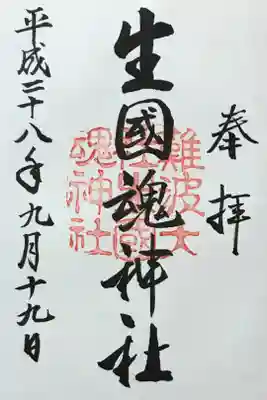 奉拝
生國魂神社
難波大
社生國
魂神社
平成二十八年九月十九日